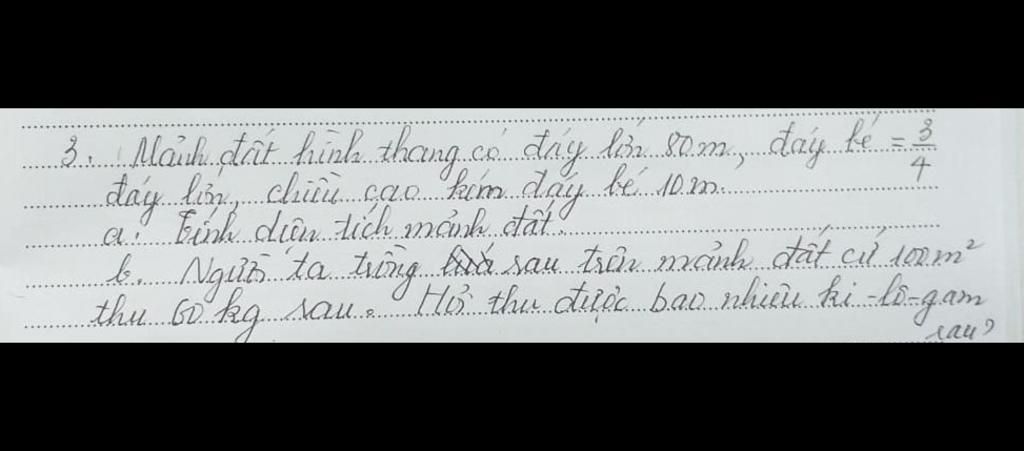 3. Mảnh đất hình thang có đáy lớn 80m, đáy bé = 3/4
đáy lớn, chiều cao kém đáy bé 10m.
a. Tính diện tích mảnh đất.
b. Người ta trồng lúa sau trên mảnh đất cứ 100m²
thu 60 kg sau. Hỏi thu được bao nhiêu ki-lô-gam
rau?